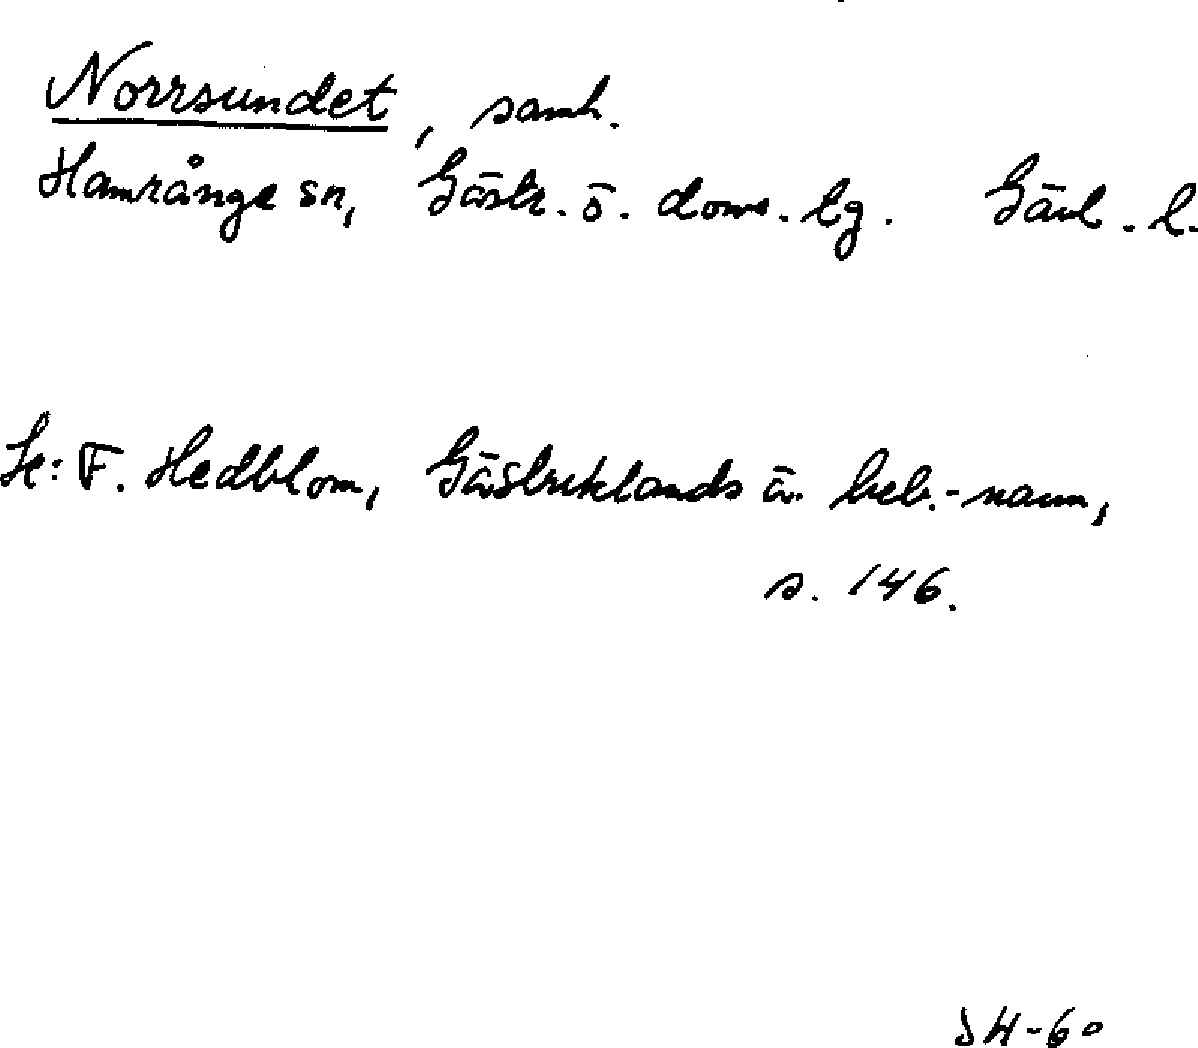 Norrsundet, samh.
Hamrånge sn, Gästr. ö. doms. lg. Gävl. l.
Se: F. Hedblom, Gästriklands ä. beb.-namn,
s. 146.
JH-60